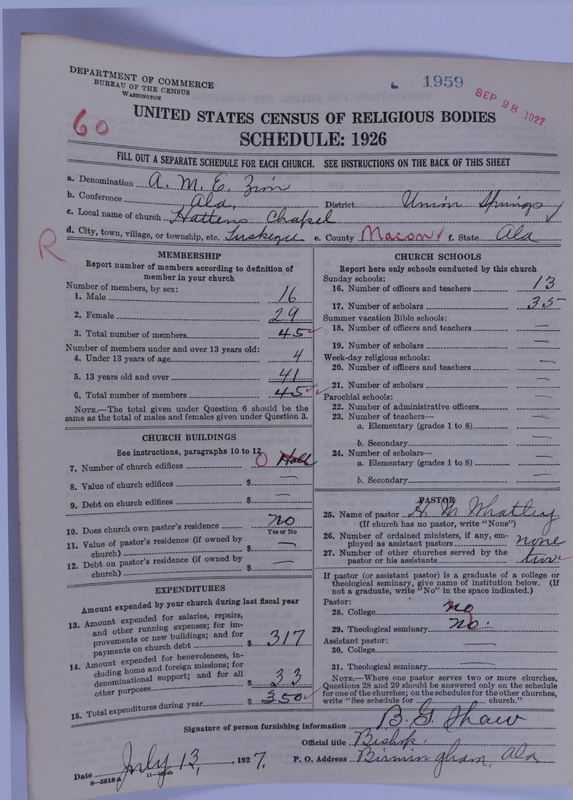 DEPARTMENT OF COMMERCE
BUREAU OF THE CENSUS
WASHINGTON
1959
SEP 28 1927
60
UNITED STATES CENSUS OF RELIGIOUS BODIES
SCHEDULE: 1926
FILL OUT A SEPARATE SCHEDULE FOR EACH CHURCH. SEE INSTRUCTIONS ON THE BACK OF THIS SHEET
a. Denomination A. M. E. Zion
b. Conference Ala. District Union Springs
c. Local name of church Hattens Chapel
d. City, town, village, or township, etc. Tuskegee e. County Macon f. State Ala
R
MEMBERSHIP
Report number of members according to definition of member in your church
Number of members, by sex:
1. Male 16
2. Female 29
3. Total number of members 45
Number of members under and over 13 years old:
4. Under 13 years of age 4
5. 13 years old and over 41
6. Total number of members 45
NOTE.—The total given under Question 6 should be the same as the total of males and females given under Question 3.
CHURCH BUILDINGS
See instructions, paragraphs 10 to 12
7. Number of church edifices 0 Hall
8. Value of church edifices $ —
9. Debt on church edifices $ —
10. Does church own pastor's residence no
Yes or No
11. Value of pastor's residence (if owned by church) $ —
12. Debt on pastor's residence (if owned by church) $ —
EXPENDITURES
Amount expended by your church during last fiscal year
13. Amount expended for salaries, repairs, and other running expenses; for improvements or new buildings; and for payments on church debt $ 317
14. Amount expended for benevolences, including home and foreign missions; for denominational support; and for all other purposes $ 33
15. Total expenditures during year $ 350
CHURCH SCHOOLS
Report here only schools conducted by this church
Sunday schools:
16. Number of officers and teachers 13
17. Number of scholars 35
Summer vacation Bible schools:
18. Number of officers and teachers —
19. Number of scholars —
Week-day religious schools:
20. Number of officers and teachers —
21. Number of scholars —
Parochial schools:
22. Number of administrative officers —
23. Number of teachers—
a. Elementary (grades 1 to 8) —
b. Secondary —
24. Number of scholars—
a. Elementary (grades 1 to 8) —
b. Secondary —
PASTOR
25. Name of pastor H. M. Whatley
(If church has no pastor, write "None")
26. Number of ordained ministers, if any, employed as assistant pastors none
27. Number of other churches served by the pastor or his assistants two
If pastor (or assistant pastor) is a graduate of a college or theological seminary, give name of institution below. (If not a graduate, write "No" in the space indicated.)
Pastor:
28. College no
29. Theological seminary no.
Assistant pastor:
30. College —
31. Theological seminary —
NOTE.—Where one pastor serves two or more churches, Questions 28 and 29 should be answered only on the schedule for one of the churches; on the schedules for the other churches, write "See schedule for church."
Signature of person furnishing information B. G. Shaw
Official title Bishop.
Date July 13, 1927. P. O. Address Birmingham, Ala